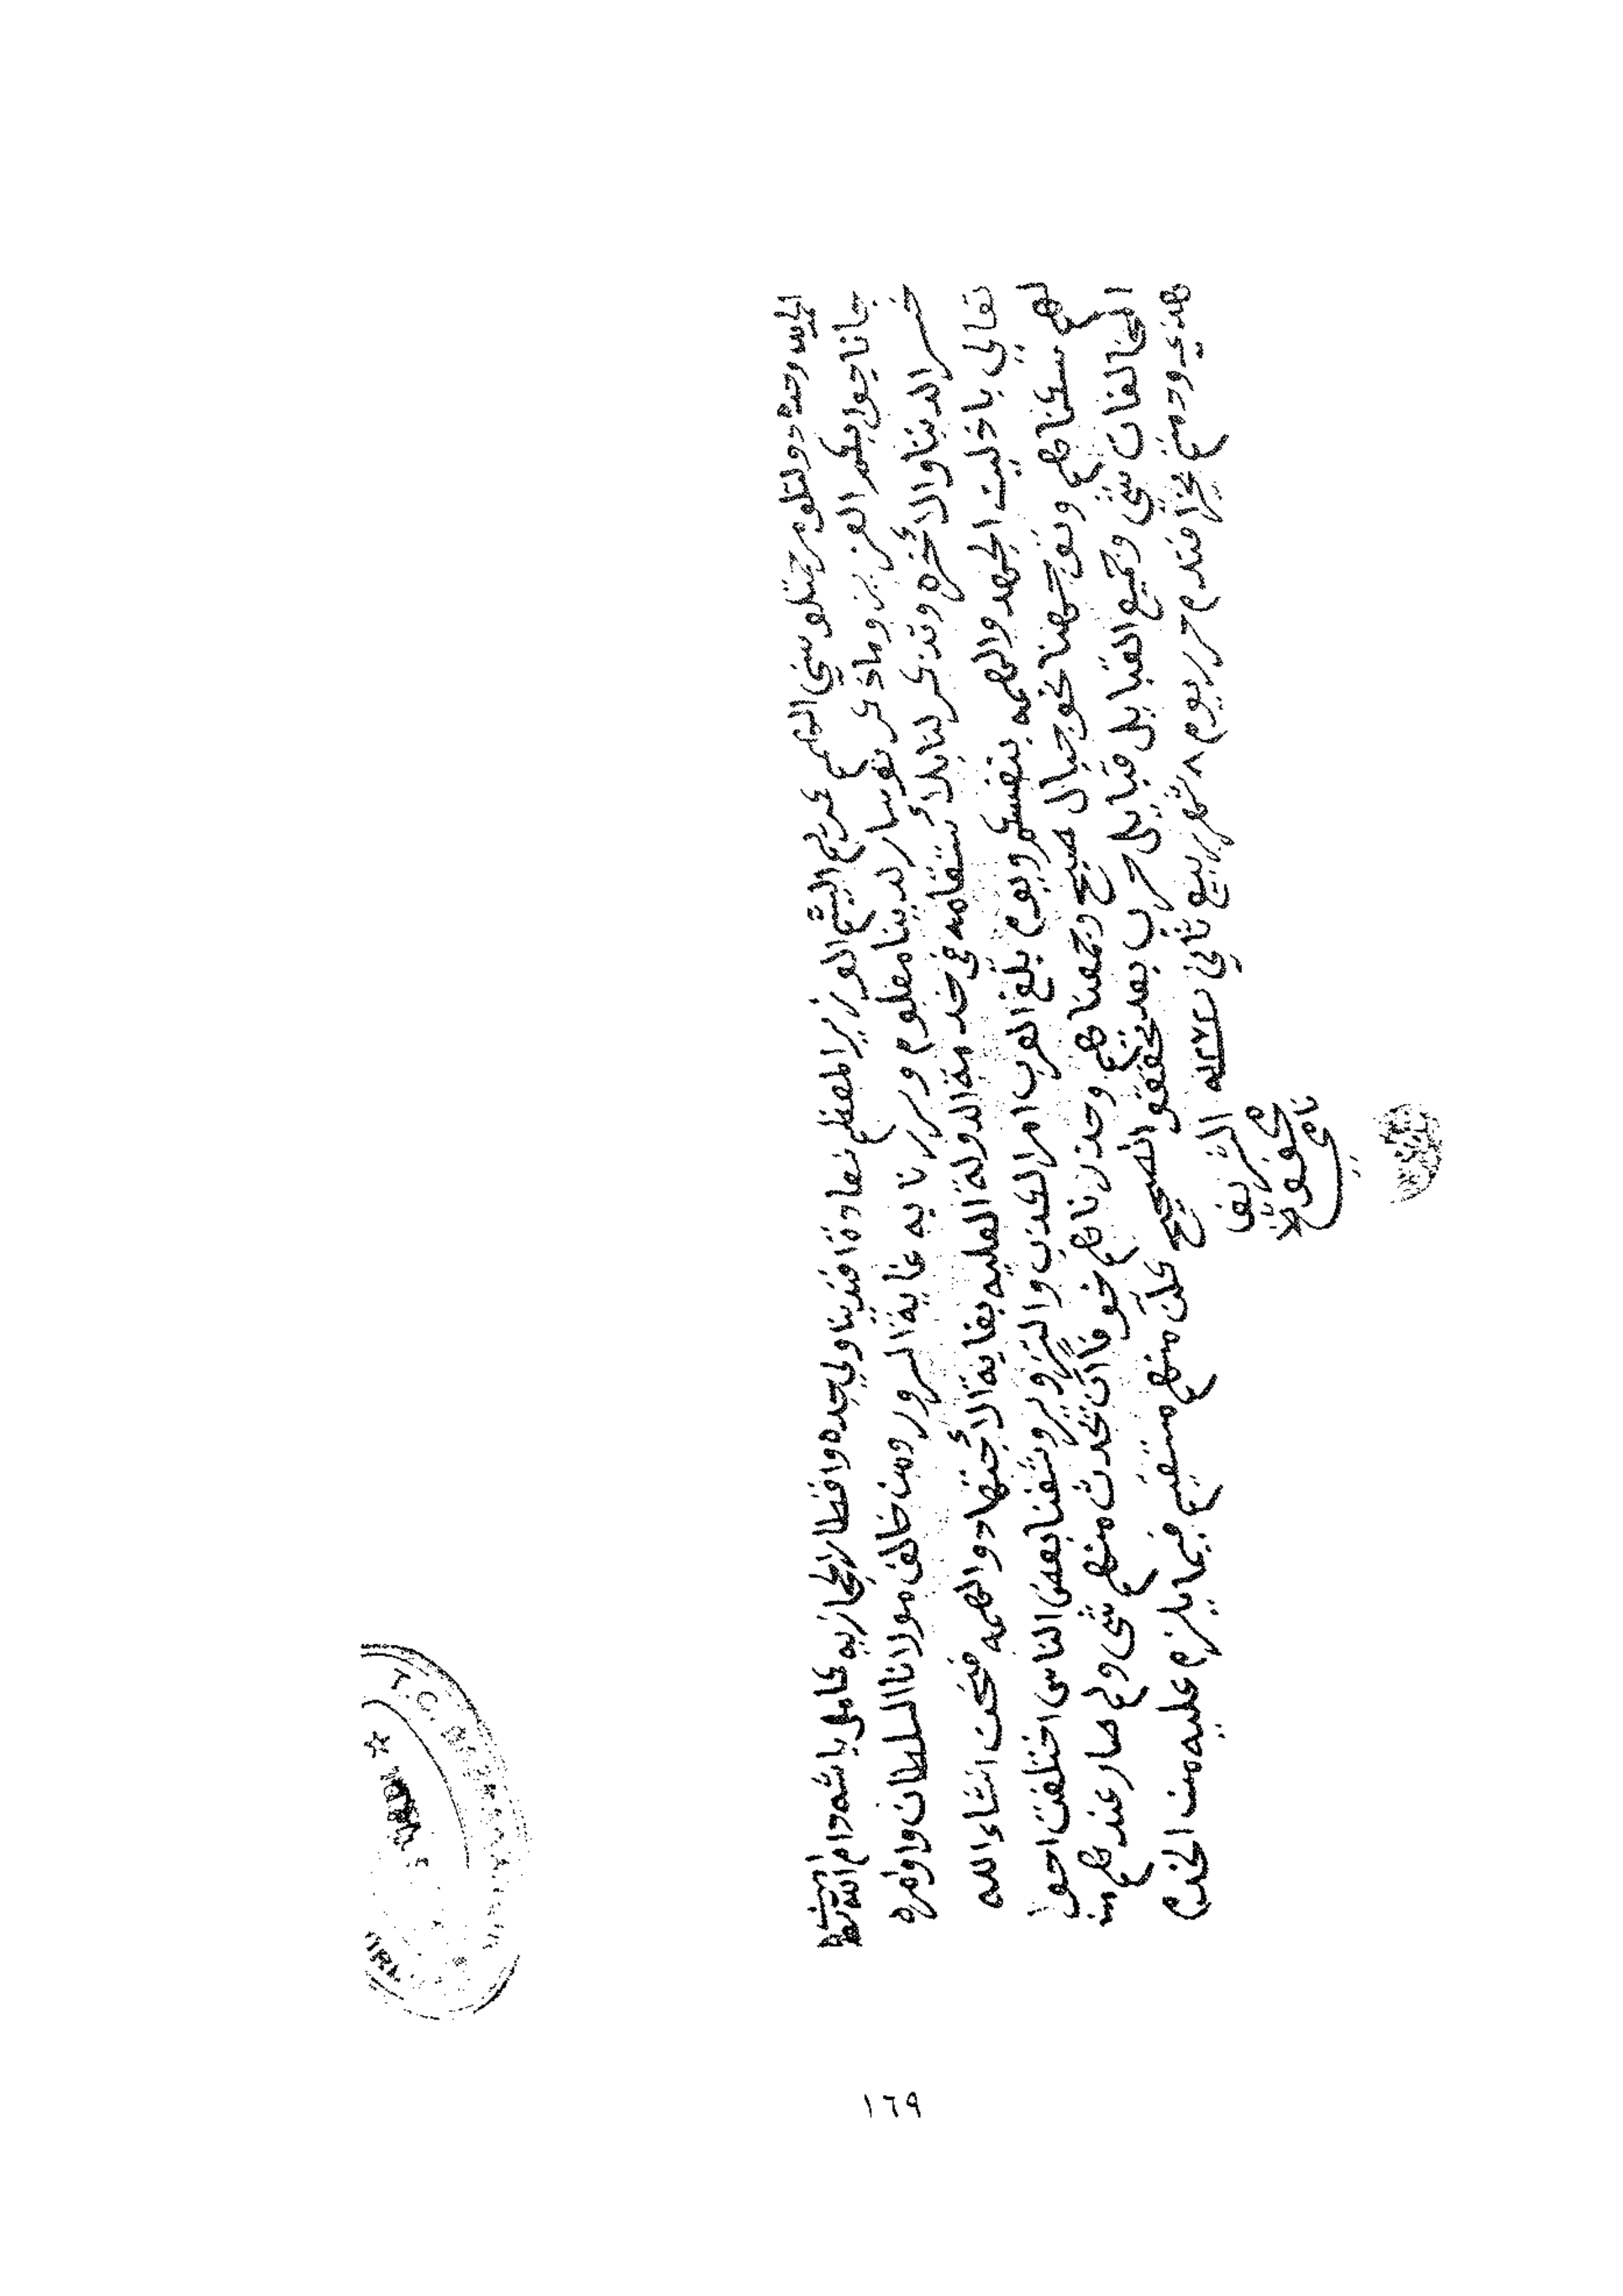 الحمد لله وحده دولتلو مرحمتلو سني الهمم كريم الشيم الوزير المعظم سعادة افندينا ولي جده واقطار الحجازيه كامل باشه دام الله بقاه
جانا جوابكم العزيز وما ذكرتو سار لدينا معلوم وسررنا به غاية السرور ومن خالف مولانا السلطان واوامره
خسر الدنيا والأخره وتذكر لنا بلأستقامه في خدمة الدولة العليه بغاية الأجتهاد والهمه فنحن انشاء الله
تعالي باذلين الجهد والهمه بنفسكم ويوم بلغ العرب امر الكذب والتزوير وشفنا بعض الناس اختلفت احوا
لهم سكناهم وتوجهنا نحو جبال صبح وجمعناهم وحذرناهم خوفاً ان يحدث منهم شي ولم صار عندهم من
المخالفات شي وجميع القبايل قبايل حرب بعد تحققو الصحيح كلن منهم مستقيم فيما يلزم عليه من الخدم
هذي ودمتم بخير افندم حرر يوم ٨ شهر ربيع ثاني ١٢٧٢ سنه
الشريف
محفوظ
ناجي
T.C. BAŞBAKANLIK
١٦٩